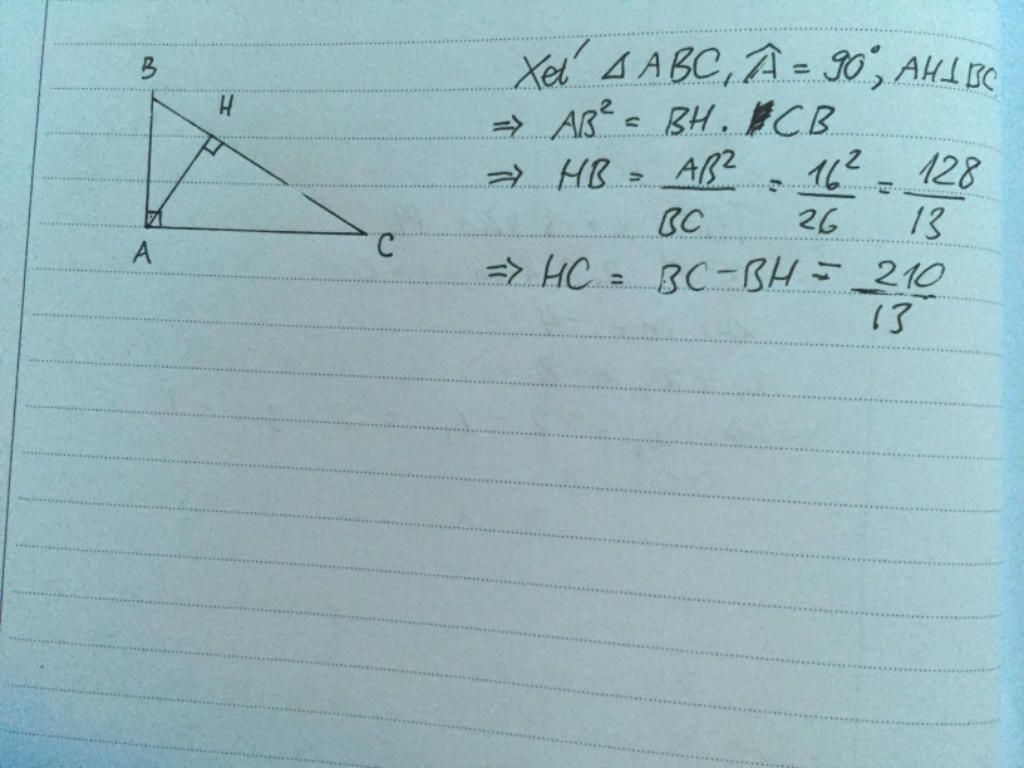 B
H
A
C
Xét △ABC, Â = 90°, AH⊥BC
⇒ AB² = BH . CB
⇒ HB = AB²/BC = 16²/26 = 128/13
⇒ HC = BC - BH = 210/13